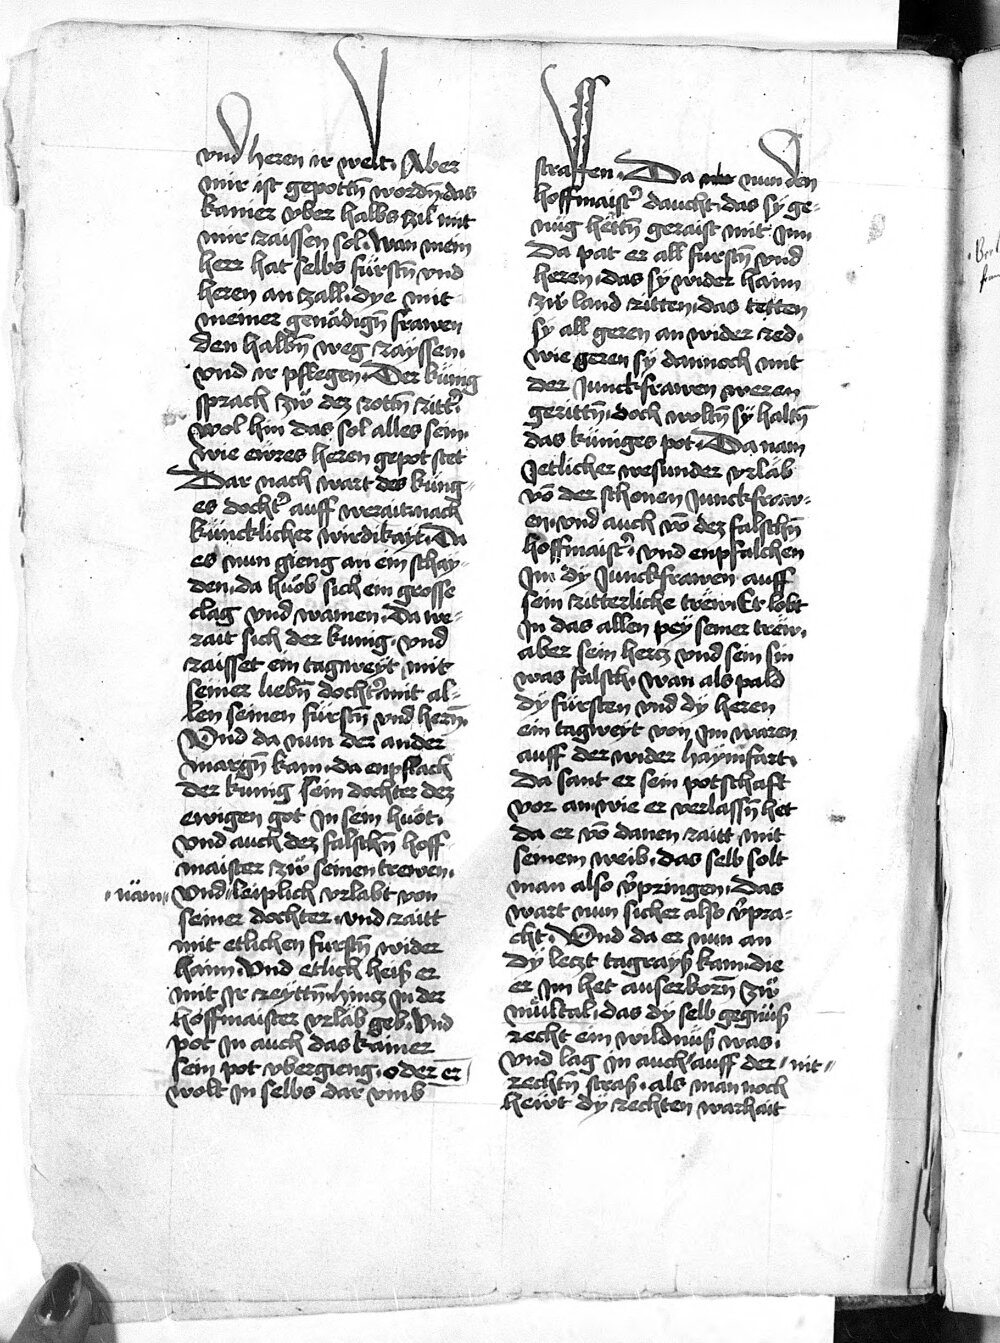 vnd heren ir welt. Aber
mir ist gepottn̄ wordn̄ das
kainer vber halbs zil mit
mir raissen sol. Wan mein
herr hat selbs fürstn̄ vnd
heren an zall. dye mit
meiner genädign̄ frawen
den halbn̄ weg rayssen.
vnd ir pflegen. Der küng
sprach zw̋ dez rottn̄ ritt̓.
wol hin das sol alles sein.
wie ewres heren gepot stet
Dar nach wart des küng⸗
es docht̓ auff weraitt nach
küncklicher wirdikayt. Da
es nun gieng an ein schay⸗
den. da hüob sich ein grosse
clag vnd wainen. Da we⸗
rait sich der kunig. vnd
raisset ein tagweyt mit
seiner liebn̄ docht̓ mit al⸗
len seinen fürstn̄ vnd hern̄.
Vnd da nun der ander
margn̄ kam. da enpflach
der kunig sein dochter dez
ewigen got in sein hüot.
vnd auch dez falschn̄ hoff
maister zw̋ seinen trewen.
⸗näm⸗ vnd⸗leiplich vrlabt von
seiner dochter. vnd raitt
mit etlichen furstn̄ wider
haim. Vnd etlich heiß er
mit ir reyttn̄. hincz in der
hoffmaister vrlab geb. Vnd
pot in auch das kainer
sein pot vbergieng. oder er
wolt in selbs dar vmb
straffen. Da nun den
hoffmaist̓ daucht. das sÿ ge⸗
nüg hettn̄ geraist mit im
Da pat er all furstn̄ vnd
heren. das sÿ wider haim
zw̋ land ritten. das tetten
sÿ all geren an wider red.
wie geren sÿ dannoch mit
der Junckfrawen weren
gerittn̄. doch woltn̄ sÿ haltn̄
das küniges pot. Da nam
Jetlicher wesunder vrlab
vō der schonen Junckfraw⸗
en. vnd auch vō dez falschn̄
hoffmaist̓. vnd enpfalchen
Im dÿ Junckfrawen auff
sein ritterliche trew. Er lobt
In das allen pey seiner trew.
aber sein hercz vnd sein sin
was falsch. wan als pald
dÿ fürsten vnd dÿ heren
ein tagweyt von im waren
auff der wider haymfart.
Da sant er sein potschaft
vor an. wie er verlassn̄ het
da er vō danen raitt mit
seinem weib. das selb solt
man also v̓pringen. Das
wart nun sicher also v̓pra⸗
cht. Vnd da er nun an
dÿ leczt tagrayß kam. die
er im het auserborn̄ zw̋
müttal. das dÿ selb gegnüß
recht ein wildnüß was.
vnd lag in auch⸗auff der ⸗nit⸗
rechtn̄ straß. als man noch
hewt dÿ rechten warhait